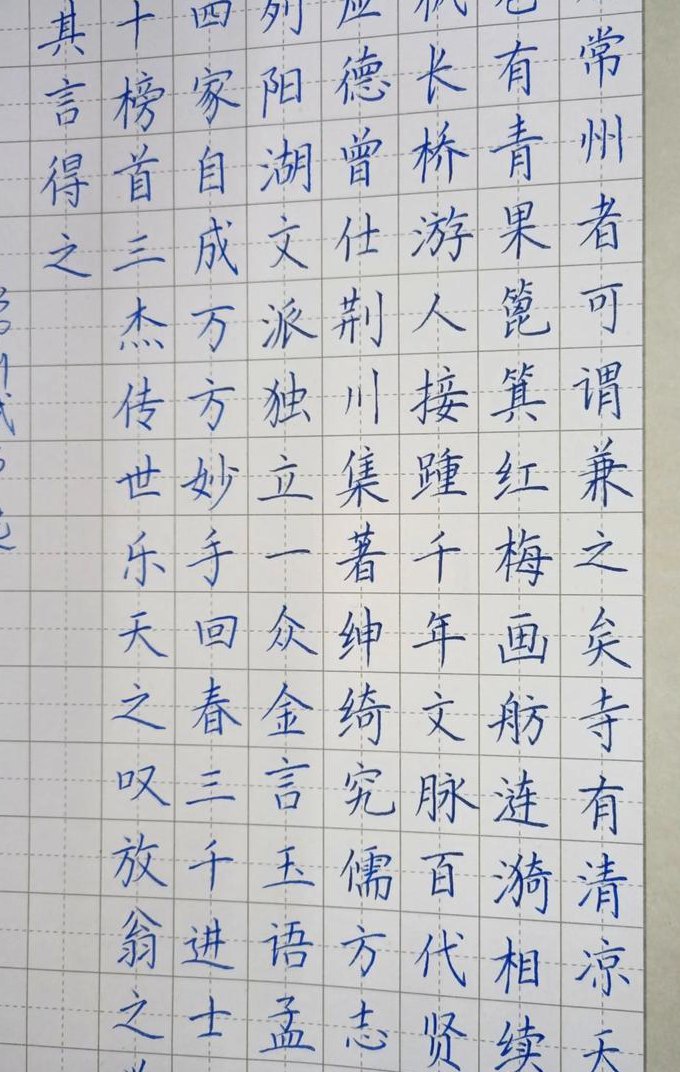 常州者可谓兼之矣寺有清凉天
有青果篦箕红梅画舫涟漪相续
长桥游人接踵千年文脉百代贤
应德曾仕荆川集著绅绮究儒方志
列阳湖文派独立一众金言玉语孟
四家自成万方妙手回春三千进士
十榜首三杰传世乐天之叹放翁之
其言得之